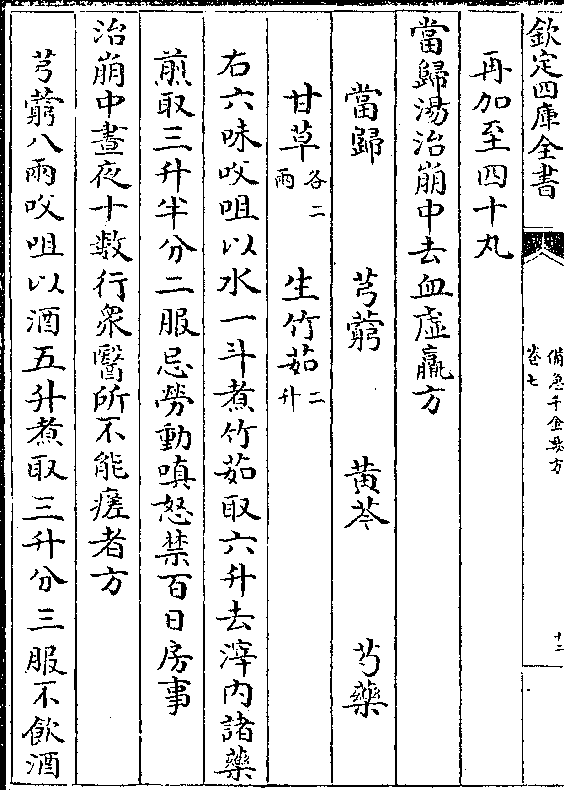 欽定四庫全書
備急千金要方
卷七
十二
再加至四十丸
當歸湯治崩中去血虛羸方
當歸 芎藭 黄芩 芍藥
甘草各二兩 生竹茹二升
右六味㕮咀以水一斗煮竹茹取六升去滓内諸藥
煎取三升半分二服忌勞動嗔怒禁百日房事
治崩中晝夜十數行衆醫所不能瘥者方
芎藭八兩㕮咀以酒五升煮取三升分三服不飲酒